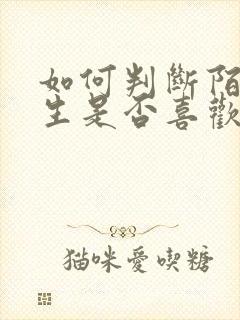 如何判斷陌
生是否喜歡
猫咪愛喫糖